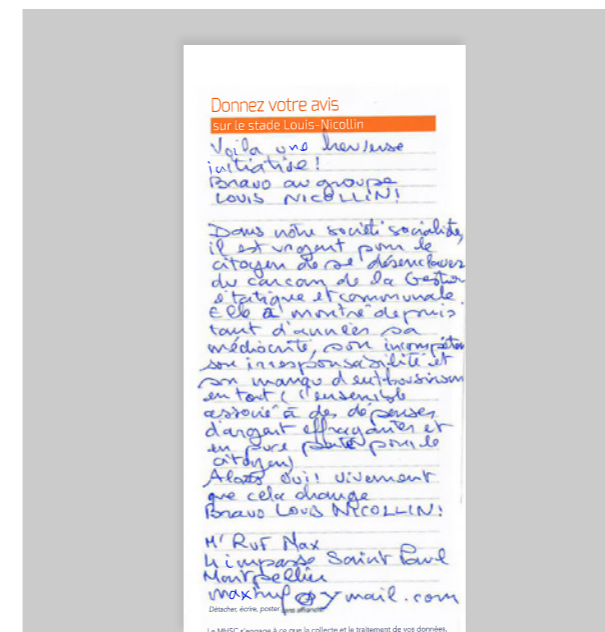 Donnez votre avis
sur le stade Louis-Nicollin
Voila une heureuse
initiative !
Bravo au groupe
LOUIS NICOLLIN !
Dans notre société socialiste,
il est urgent pour le
citoyen de se désenclaver
du carcan de la Gestion
étatique et communale.
Elle a montré depuis
tant d'années sa
médiocrité, son incompéten
son irresponsabilité et
son manqu d'enthousiasm
en tout ( l'ensemble
associé à des dépenses
d'argent effrayantes et
en pure perte pour le
citoyen)
Alors oui ! vivement
que cela change
Bravo LOUIS NICOLLIN !
Mr RUF Max
4 impasse Saint Paul
Montpellier
maxruf@ymail.com
Détacher, écrire, poster sans affranchir
Le MHSC s'engage à ce que la collecte et le traitement de vos données,